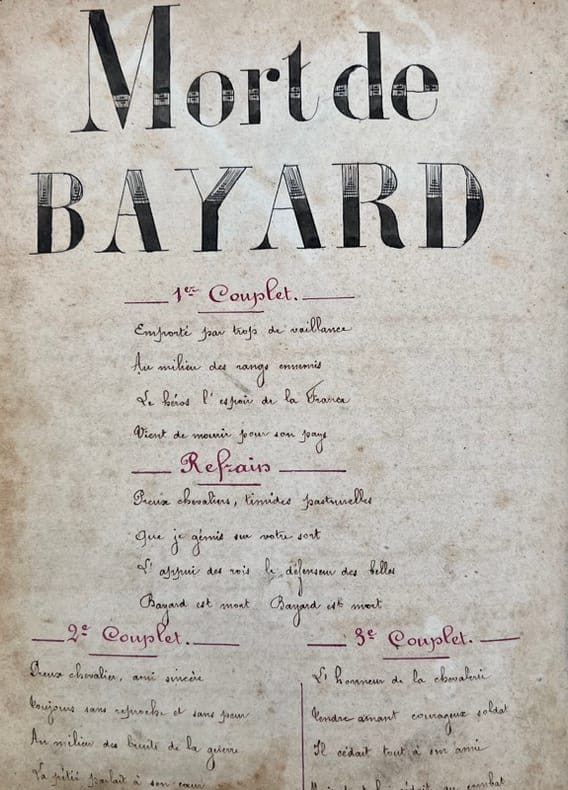 Mort de
BAYARD
1er Couplet.
Emporté par trop de vaillance
Au milieu des rangs ennemis
Le héros l'espoir de la France
Vient de mourir pour son pays
Refrain
Preux chevaliers, timides pastourelles
Que je gémis sur votre sort
L'appui des rois le défenseur des belles
Bayard est mort Bayard est mort
2e Couplet.
Preux chevalier, ami sincère
Toujours sans reproche et sans peur
Au milieu des bruits de la guerre
La pitié parlait à son cœur
3e Couplet.
L'honneur de la chevalerie
Tendre amant courageux soldat
Il cédait tout à son amie
combat